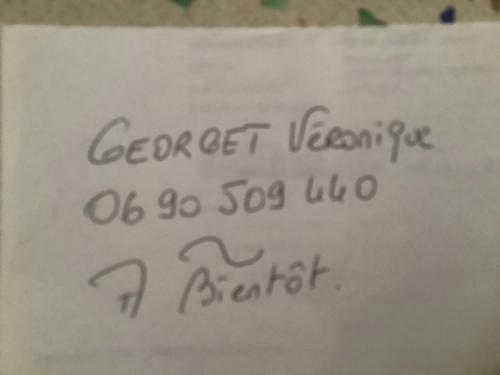 GEORGET Véronique
06 90 509 440
A Bientôt.